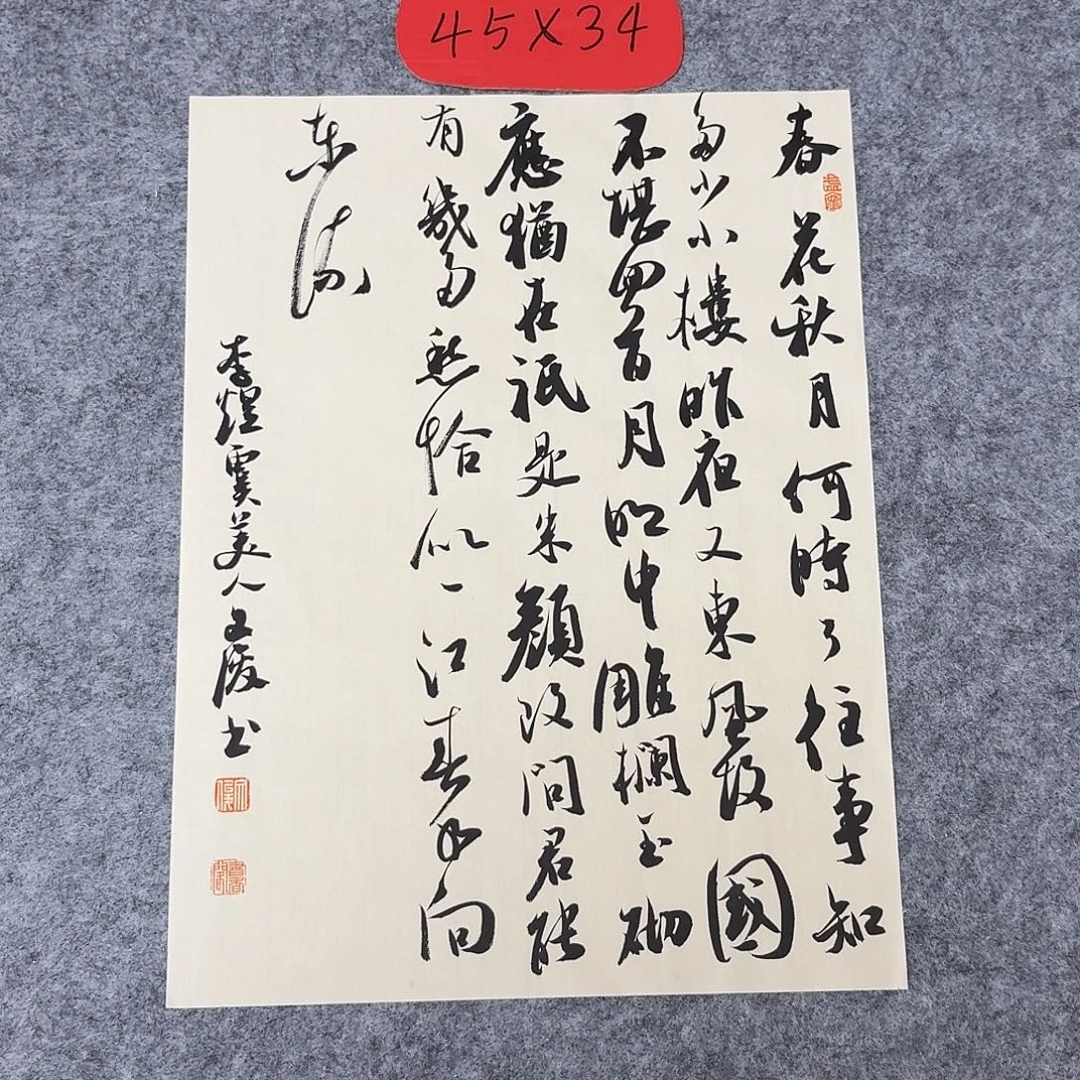 45X34
春花秋月何時了往事知
多少小樓昨夜又東風故國
不堪回首月明中雕欄玉砌
應猶在祇是朱顏改問君能
有幾多愁恰似一江春水向
东流
李煜虞美人文书